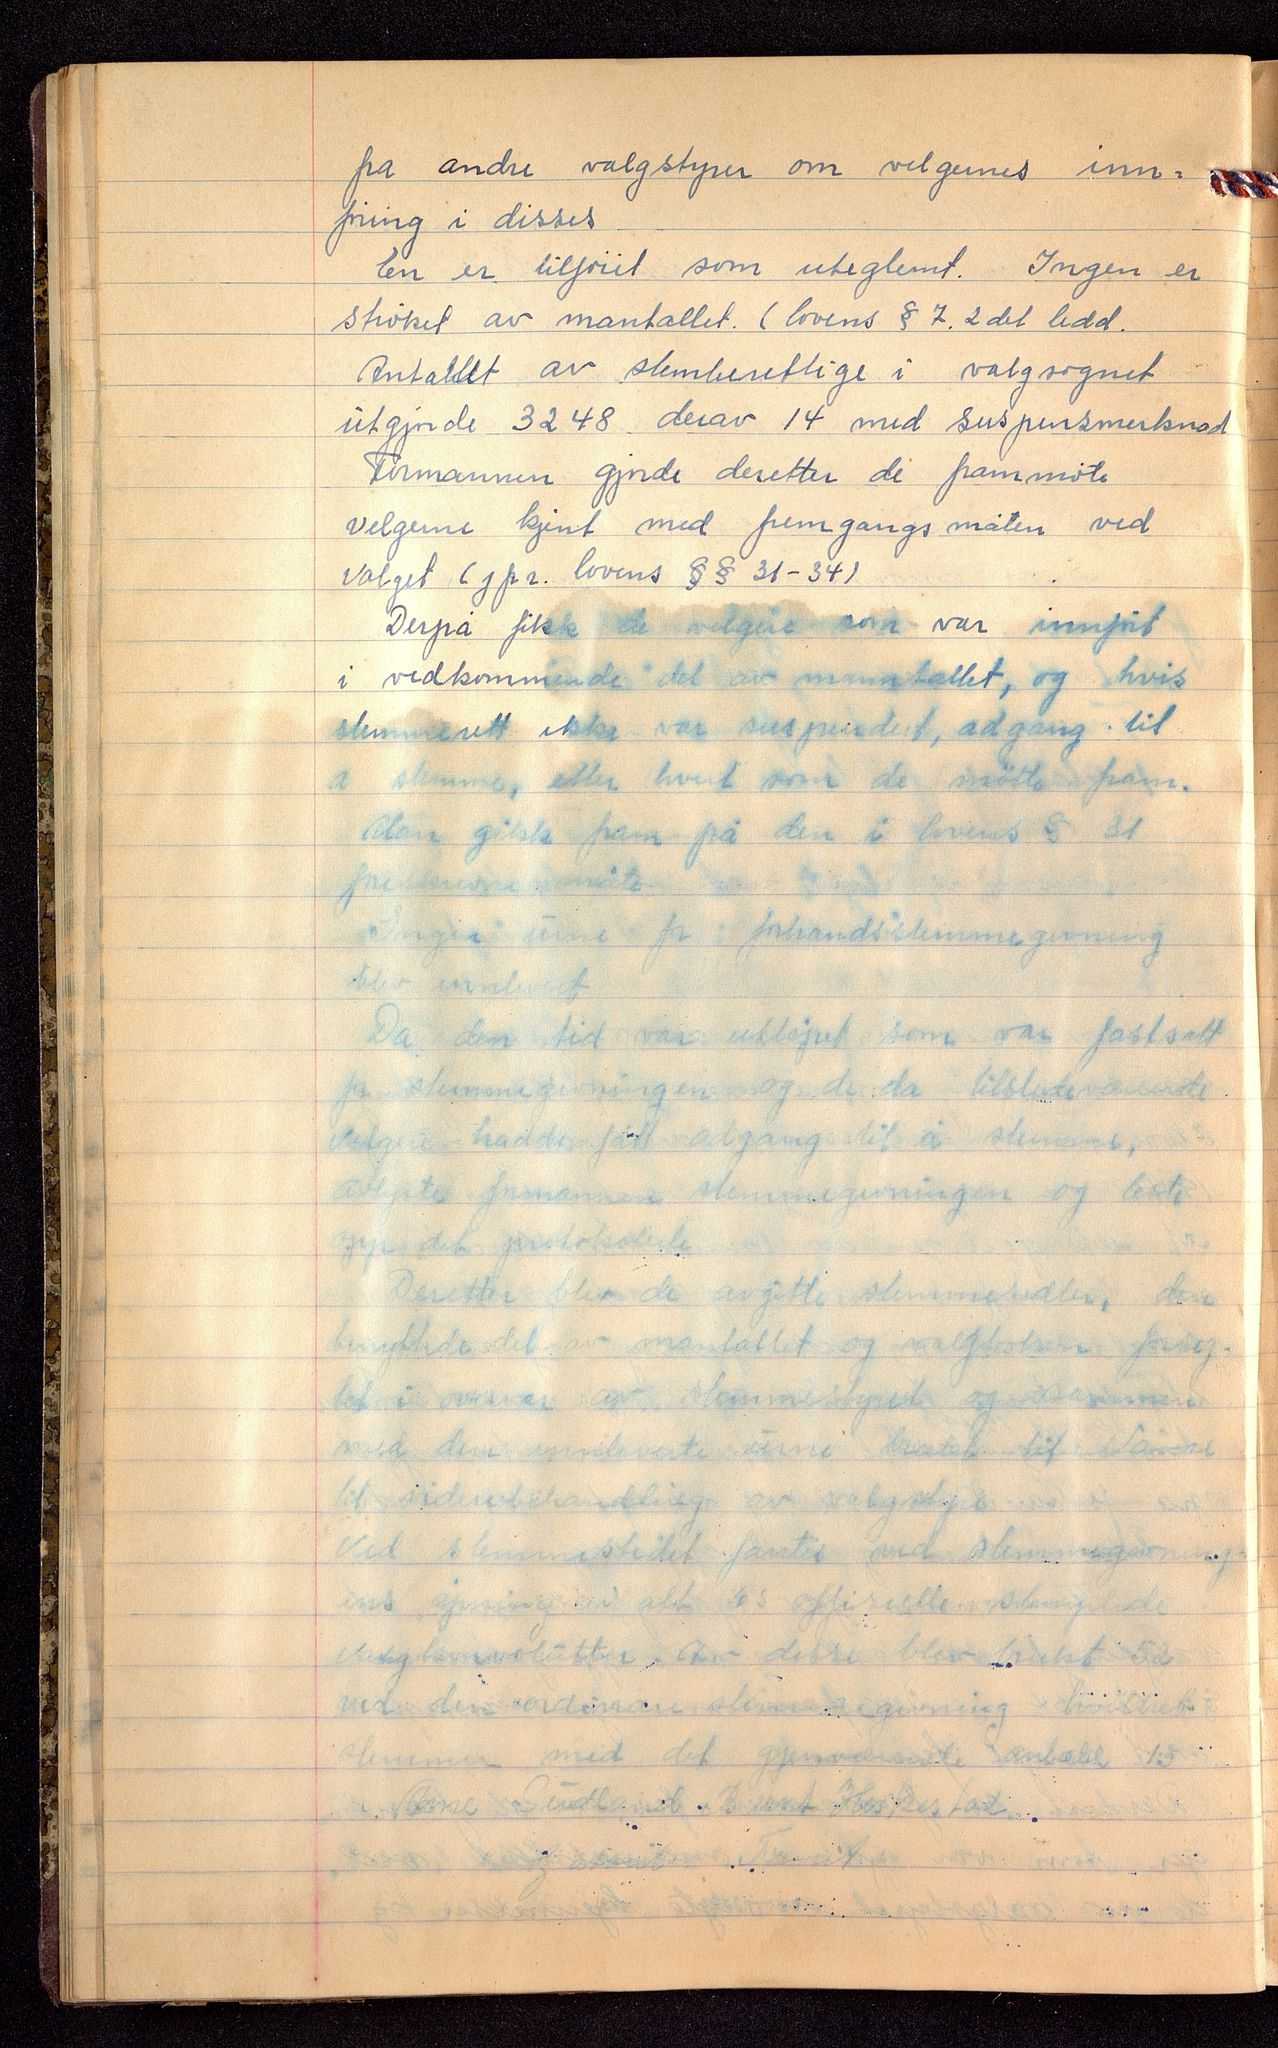 fra andre valgstyrer om velgernes inn-
føring i disses
En er tilføiet som uteglemt. Ingen er
strøket av mantallet. (lovens § 7. 2det ledd.
Antallet av stemberettige i valgsognet
utgjorde 3248 derav 14 med suspensmerknad
Formannen gjorde deretter de frammøte
velgerne kjent med fremgangsmåten ved
valget (jfr. lovens §§ 31-34)
Derpå fikk de velgere som var innført
i vedkommende del av manntallet, og hvis
stemmerett ikke var suspendert, adgang til
å stemme, etter hvert som de møtte fram.
Man gikk fram på den i lovens § 31
foreskrevne måte
Ingen urne for forhåndsstemmegivning
blev innlevert
Da den tid var utløpet som var fastsatt
for stemmegivningen og de da tilstedeværende
velgere hadde fått adgang til å stemme,
avlyste formannen stemmegivningen og leste
opp det protokolerte
Deretter blev de avgitte stemmesedler, den
benyttede del av mantallet og valgboken forseg-
let i overvær av stemmestyret og sammen
med den innleverte urne bragt til
til videre behandling av valgstyret
Ved stemmestedet fantes ved stemmegivning-
ens åpning i alt 65 offisielle stemplede
valgkonvolutter. Av disse blev brukt 52
ved den ordinære stemmegivning
stemmer med det gjenværende antall 13
Arne Bernt